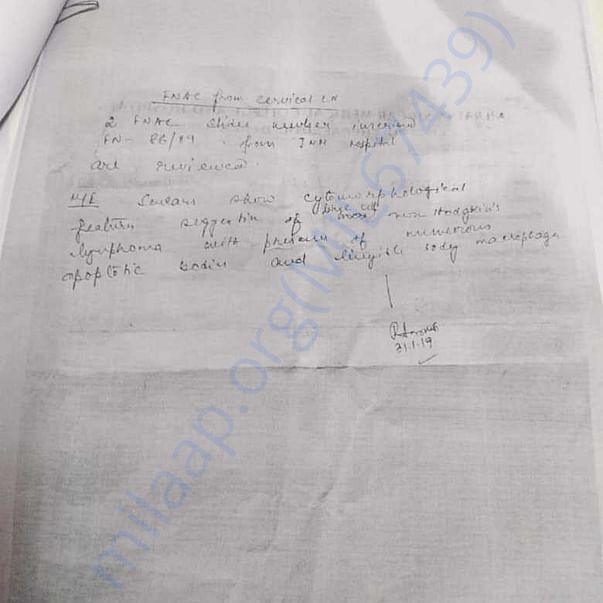 FNAC from cervical LN
2 FNAC slides number inscribed
FN- 86/19 from JNM Hospital
are reviewed.
M/E Smears show cytomorphological
feature suggestive of large cell non Hodgkin's
lymphoma with presence of numerous
apoptotic bodies and tingible body macrophage
31.1.19
milaap.org(MIL67439)